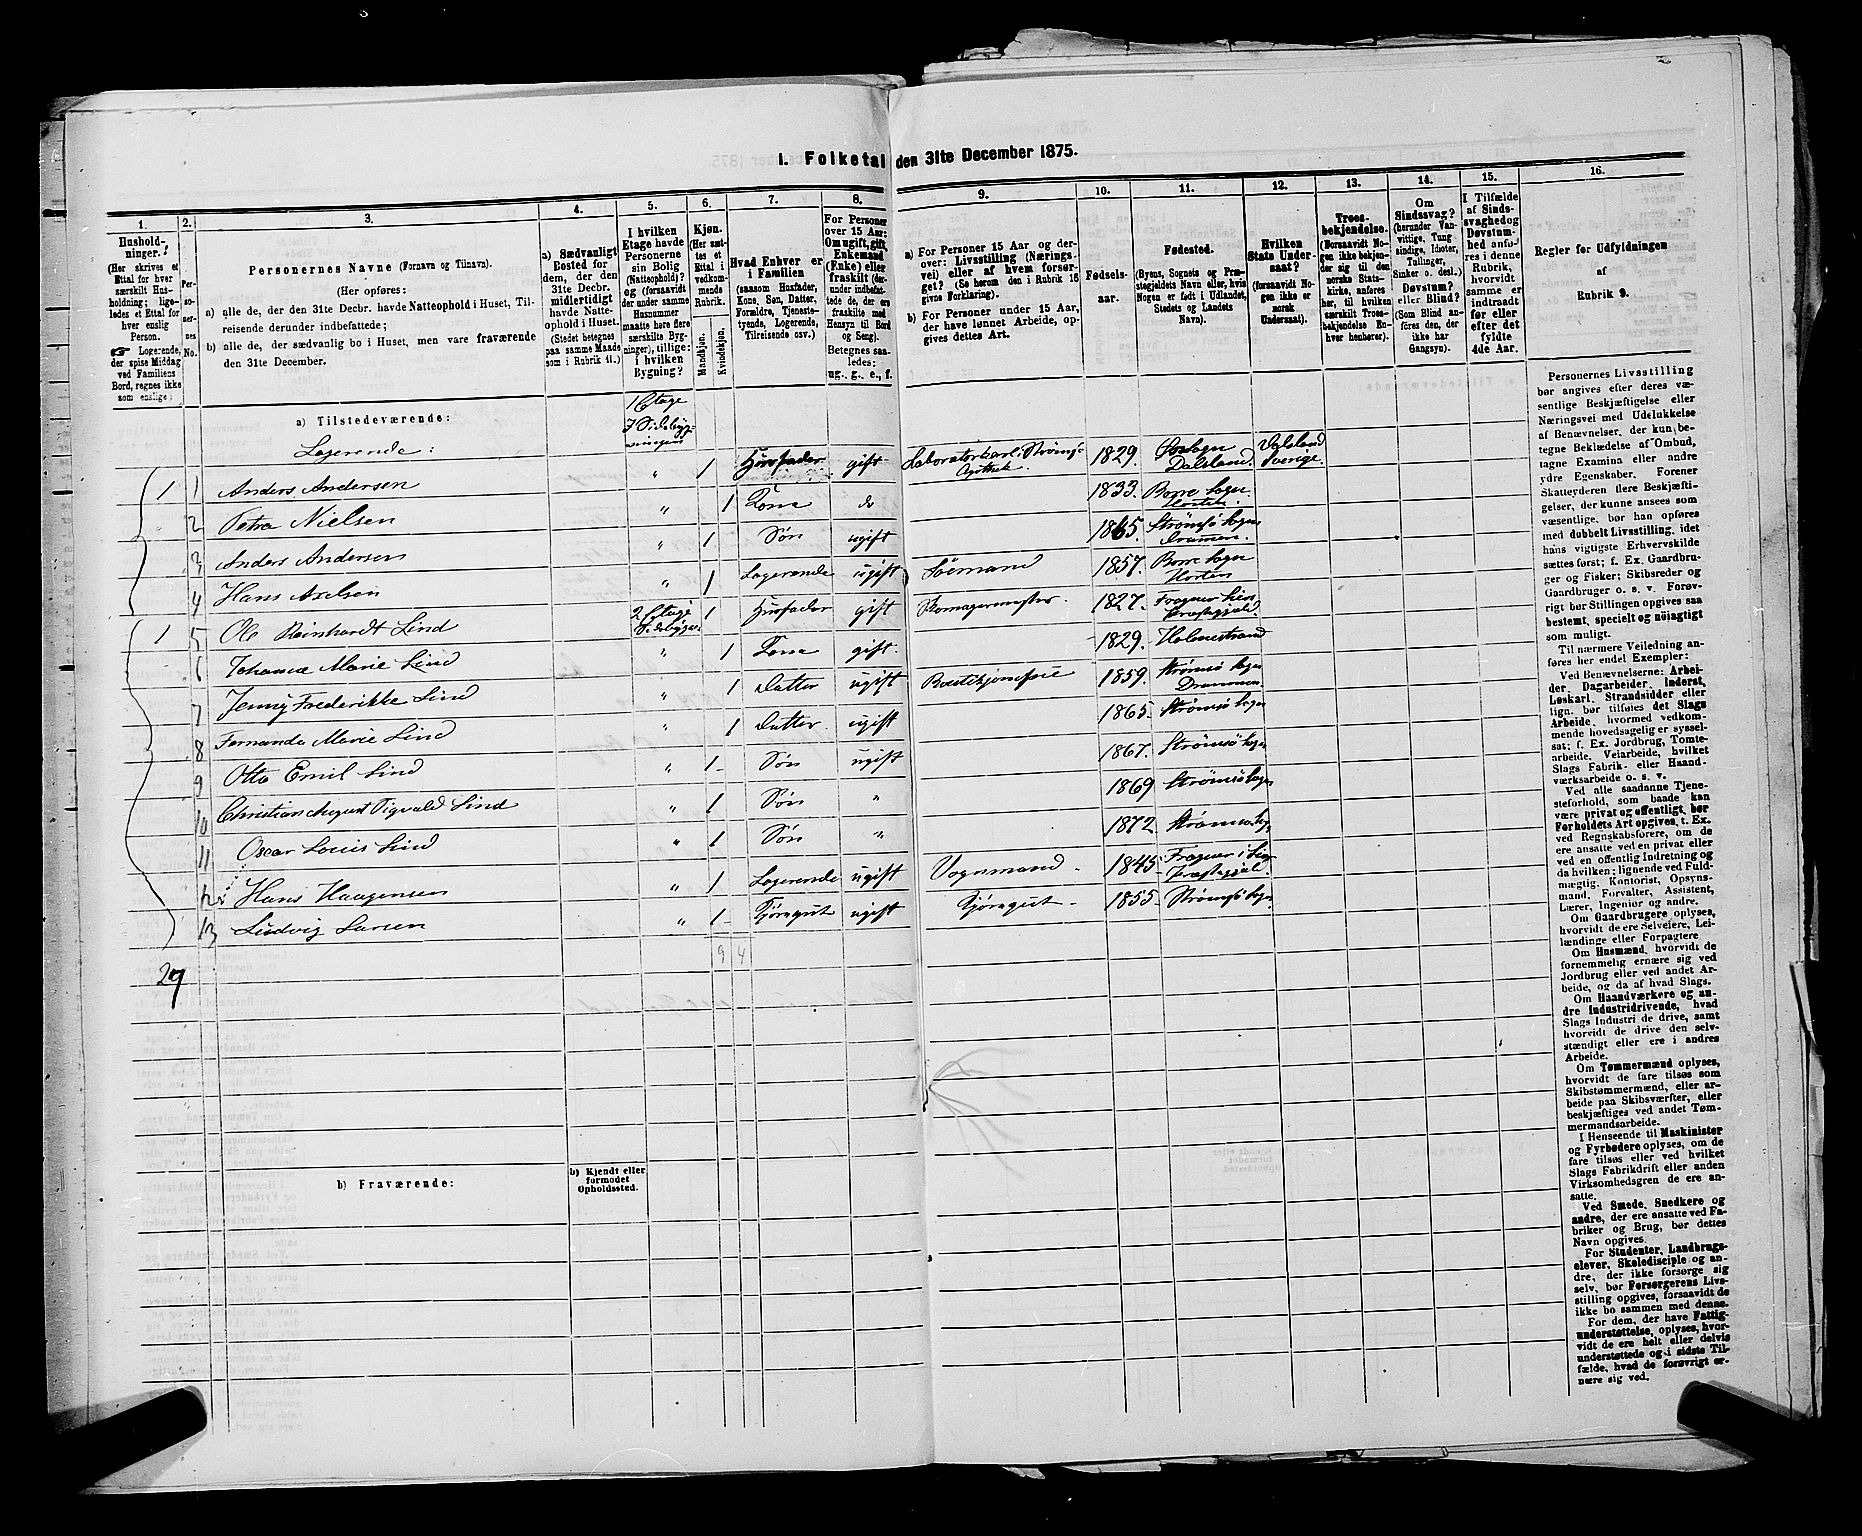 I. Folketal den 31te December 1875.
1. 2. 3. 4. 5. 6. 7. 8. 9. 10. 11. 12. 13. 14. 15. 16.
Hushold-
ninger.
(Her skrives et
Ettal for hver
særskilt Hus-
holdning; lige-
ledes et Ettal for
hver enslig
Person.
Logerende,
der spise Middag
ved Familiens
Bord, regnes ikke
som enslige.)
Per-
so-
ner-
nes
No.
Personernes Navne (Fornavn og Tilnavn).
(Her opføres:
a) alle de, der den 31te Decbr. havde Natteophold i Huset, Til-
reisende derunder indbefattede;
b) alle de, der sædvanlig bo i Huset, men vare fraværende
den 31te December.
a) Sædvanligt
Bosted for
dem, der den
31te Decbr.
midlertidigt
havde Natte-
ophold i Huset.
(Stedet betegnes
paa samme Maade
som i Rubrik 11.)
I hvilken
Etage havde
Personerne
sin Bolig
(Natteophold)?
og (forsaavidt
der under samme
Husnummer
maatte høre flere
særskilte Byg-
ninger), tillige:
i hvilken
Bygning?
Kjøn.
(Her sæt-
tes et
Ettal i
vedkom-
mende
Rubrik.
Mandkjøn.
Kvindekjøn.
Hvad Enhver er
i Familien
(saasom Husfader,
Kone, Søn, Datter,
Forældre, Tjeneste-
tyende, Logerende,
Tilreisende osv.)
For Personer
over 15 Aar:
Om ugift, gift,
Enkemand
(Enke) eller
fraskilt (der-
under indbefat-
tede de, der ere
fraskilte med
Hensyn til Bord
og Seng).
Betegnes saa-
ledes:
ug., g., e., f.
a) For Personer 15 Aar og der-
over: Livsstilling (Nærings-
vei) eller af hvem forsør-
get? (Se herom den i Rubrik 16
givne Forklaring).
b) For Personer under 15 Aar,
der have lønnet Arbeide, op-
gives dettes Art.
Fødsels-
aar.
Fødested.
(Byens, Sognets og Præ-
stegjeldets Navn eller, hvis
Nogen er født i Udlandet,
Stedets og Landets
Navn).
Hvilken
Stats Under-
saat?
(forsaavidt No-
gen ikke er
norsk
Undersaat).
Troes-
bekjendelse.
(Forsaavidt No-
gen ikke bekjen-
der sig til den
norske Stats-
kirke, anføres
her, til hvilken
særskilt Troes-
bekjendelse En-
hver henhører).
Om
Sindssvag?
(herunder Van-
vittige, Tung-
sindige, Idioter,
Tullinger,
Sinker o. desl.)
Døvstum?
eller Blind?
(Som Blind an-
føres den, der
ikke har
Gangsyn).
I Tilfælde
af Sinds-
svaghed og
Døvstum-
hed anfø-
res i denne
Rubrik,
hvorvidt
samme er
indtraadt
før eller
efter det
fyldte
4de Aar.
Regler for Udfyldningen
af
Rubrik 9.
a) Tilstedeværende: 1 Etage
I Sidebyg-
ningen
Logerende:
1 1 Anders Andersen " 1 Husfader gift Laboratorkarl i Strømsø Apothek 1829. Dalsland. Dalsland Sverige.
2 Petra Nielsen " 1 Kone do 1833. Borre Sogn Horten
3 Anders Andersen " 1 Søn ugift 1865. Strømsø Sogn Dramen.
4 Hans Axelsen " 1 Logerende ugift Sømand 1857. Borre Sogn Horten
1 5 Ole Reinhardt Lind 2 Etage Sidebygn. 1 Husfader gift Skomagermester. 1827. Fragner Lier Præstegjeld.
6 Johanne Marie Lind " 1 Kone gift. 1829. Holmestrand
7 Jenny Frederikke Lind " 1 Datter ugift 1859. Strømsø Sogn Drammen
8 Fernanda Marie Lind " 1 Datter. ugift 1865. Strømsø Sogn
9 Otto Emil Lind " 1 Søn ugift 1867. Strømsø Sogn
10 Christian August Sigvald Lind " 1 Søn " 1869 Strømsø Sogn
11 Oscar Louis Lind " 1 Søn " 1872 Strømsø Sog.
12 Hans Haagensen " 1 Logerende ugift Vognmand 1845 Fragner i Lier Præstegjeld.
13 Ludvig Larsen " 1 Kjøregut ugift Kjøregut 1855 Strømsø Sogn
9 4
29
b) Fraværende:
b) Kjendt eller
formodet
Opholdssted.
Personernes Livsstilling
bør angives efter deres væ-
sentlige Beskjæftigelse eller
Næringsvei med Udelukkelse
af Benævnelser, der kun be-
tegne Beklædelse af Ombud,
tagne Examina eller andre
ydre Egenskaber. Forener
Skatteyderen flere Beskjæfti-
gelser, der kunne ansees som
væsentlige, bør han opføres
med dobbelt Livsstilling, idet
hans vigtigste Erhvervskilde
sættes først; f. Ex. Gaardbru-
ger og Fisker; Skibsreder og
Gaardbruger o. s. v. Forøv-
rigt bør Stillingen opgives saa
bestemt, specielt og nøiagtigt
som muligt.
Til nærmere Veiledning an-
føres her endel Exempler:
Ved Benævnelserne: Arbei-
der, Dagarbeider, Inderst,
Løskarl, Strandsidder eller
lign. bør tilføies det Slags
Arbeide, hvormed vedkom-
mende hovedsagelig er syssel-
sat; f. Ex. Jordbrug, Tomte-
arbeide, Veiarbeide, hvilket
Slags Fabrik- eller Haand-
værksarbeide o. s. v.
Ved alle saadanne Tjene-
steforhold, som baade kan
være privat og offentligt, bør
Forholdets Art opgives, t. Ex.
ved Regnskabsførere, om de
ere ansatte ved en privat eller
ved en offentlig Indretning og
da hvilken; lignende ved Fuld-
mægtig, Kontorist, Opsyns-
mand, Forvalter, Assistent,
Lærer, Ingeniør og andre.
Om Gaardbrugere oplyses,
hvorvidt de ere Selveiere, Lei-
lændinge eller Forpagtere
Om Husmænd, hvorvidt de
fornemmelig ernære sig ved
Jordbrug eller ved andet Ar-
beide, og da af hvad Slags.
Om Haandværkere og an-
dre Industridrivende, hvad
Slags Industri de drive, samt
hvorvidt de drive den selv-
stændigt eller ere i andres
Arbeide.
Om Tømmermænd oplyses,
hvorvidt de fare tilsøs som
Skibstømmermænd, eller ar-
beide paa Skibsværfter, eller
beskjæftiges ved andet Tøm-
mermandsarbeide.
I Henseende til Maskinister
og Fyrbødere oplyses, om de
fare tilsøs eller ved hvilket
Slags Fabrikdrift eller anden
Virksomhedsgren de ere an-
satte.
Ved Smede, Snedkere og
andre, der ere ansatte ved Fa-
briker og Brug, bør dettes
Navn opgives.
For Studenter, Landbrugs-
elever, Skoledisciple og an-
dre, der ikke forsørge sig
selv, bør Forsørgerens Livs-
stilling opgives, forsaavidt de
ikke bo sammen med denne.
For dem, der have Fattig-
understøttelse, oplyses, hvor-
vidt de ere helt eller delvis
understøttede og i sidste Til-
fælde, hvad de forøvrigt er-
nære sig ved.